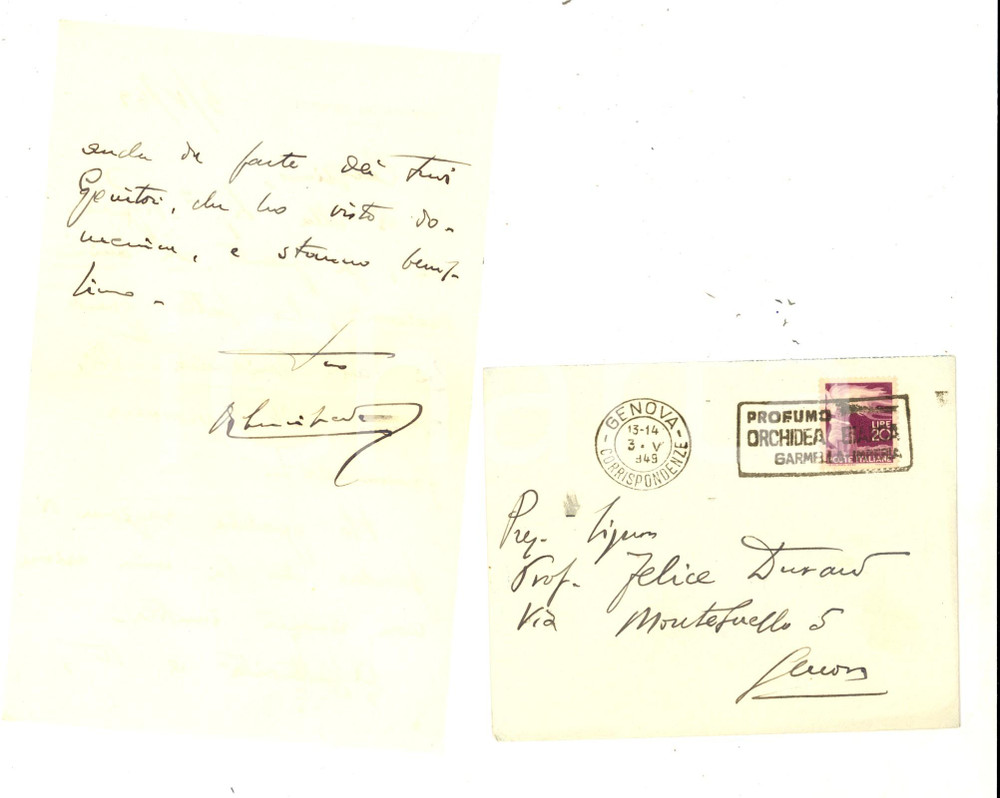 anche da parte dei tuoi
Genitori, che ho visto do-
menica, e stanno benis-
simo -
Tuo
GENOVA
13-14
3. V
949
CORRISPONDENZE
PROFUMO
ORCHIDEA
GARMELLA IMPERIA
LIRE
20
POSTE ITALIANE
Preg. Signor
Prof. Felice Durand
Via Montesuello 5
Genova